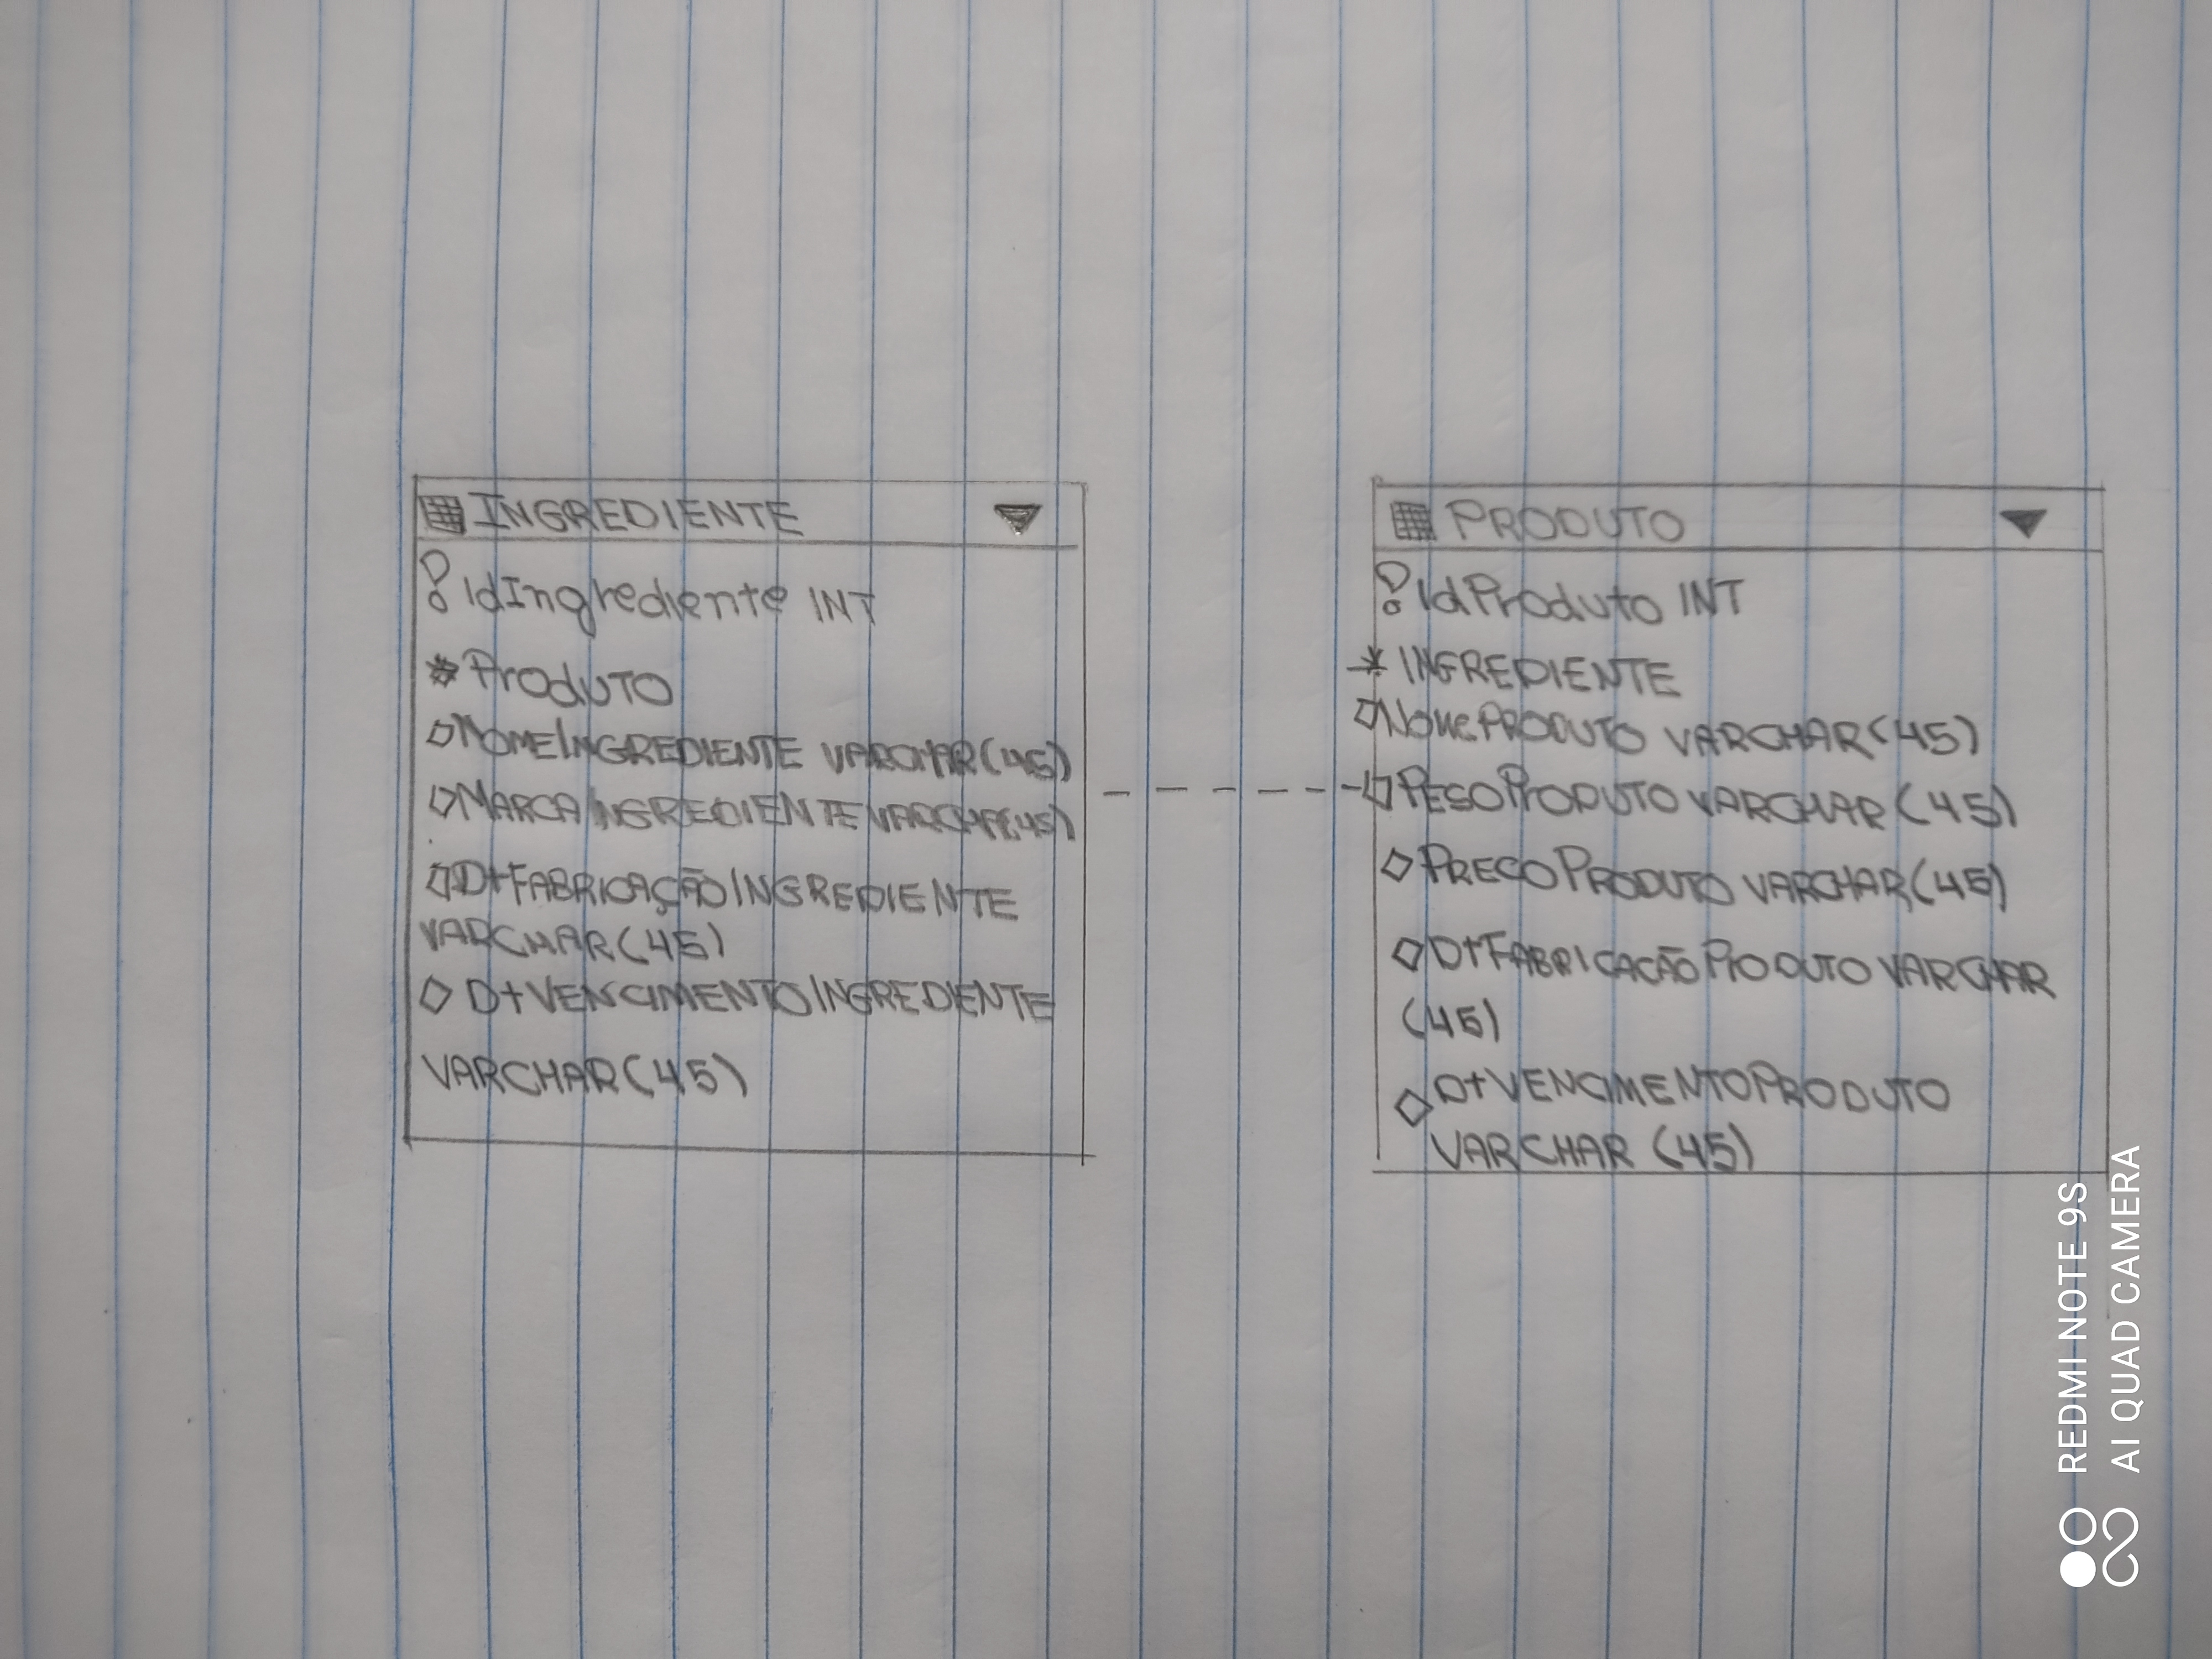 INGREDIENTE
IdIngrediente INT
* Produto
NOMEINGREDIENTE VARCHAR(45)
MARCA INGREDIENTE VARCHAR(45)
DtFABRICAÇÃO INGREDIENTE
VARCHAR(45)
Dt VENCIMENTO INGREDIENTE
VARCHAR(45)
PRODUTO
IdProduto INT
* INGREDIENTE
NomePRODUTO VARCHAR(45)
PESO PRODUTO VARCHAR(45)
PRECO PRODUTO VARCHAR(45)
DtFABRICACÃO PRODUTO VARCHAR
(45)
Dt VENCIMENTO PRODUTO
VARCHAR (45)
REDMI NOTE 9S
AI QUAD CAMERA